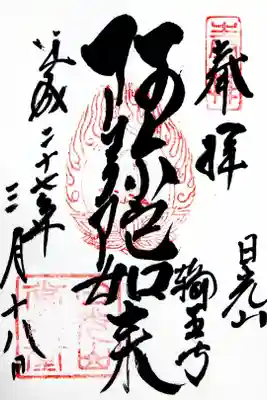 奉拝
日光山
輪王寺
阿弥陀如来
平成二十七年
三月十八日